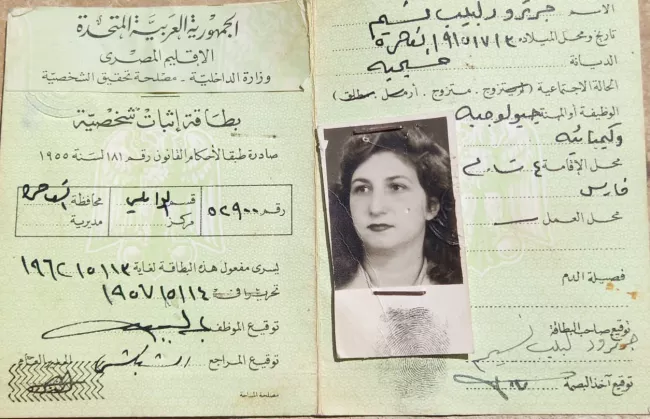 الجمهورية العربية المتحدة
الإقليم المصرى
وزارة الداخلية - مصلحة تحقيق الشخصية
بطاقة إثبات شخصية
صادرة طبقا لأحكام القانون رقم ١٨١ لسنة ١٩٥٥
رقم ٥٢٩٠٠ قسم مركز محافظة مديرية القاهرة
يسرى مفعول هذه البطاقة لغاية ١٩٦٢/٥/١٣
تحريرا فى ١٩٥٧/٥/١٤
توقيع الموظف
توقيع المراجع
مصلحة المساحة
الاسم جرترود لبيب نسيم
تاريخ ومحل الميلاد القاهرة
الديانة مسيحية
الحالة الاجتماعية (متزوج . أرمل . مطلق)
الوظيفة أو المهنة جيولوجية
وكيميائية
محل الإقامة ٤
فارس
محل العمل
فصيلة الدم
توقيع صاحب البطاقة
جرترود لبيب نسيم
توقيع آخذ البصمة